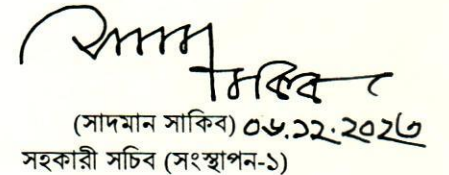 (সাদমান সাকিব) ০৬.১২.২০২৩
সহকারী সচিব (সংস্থাপন-১)